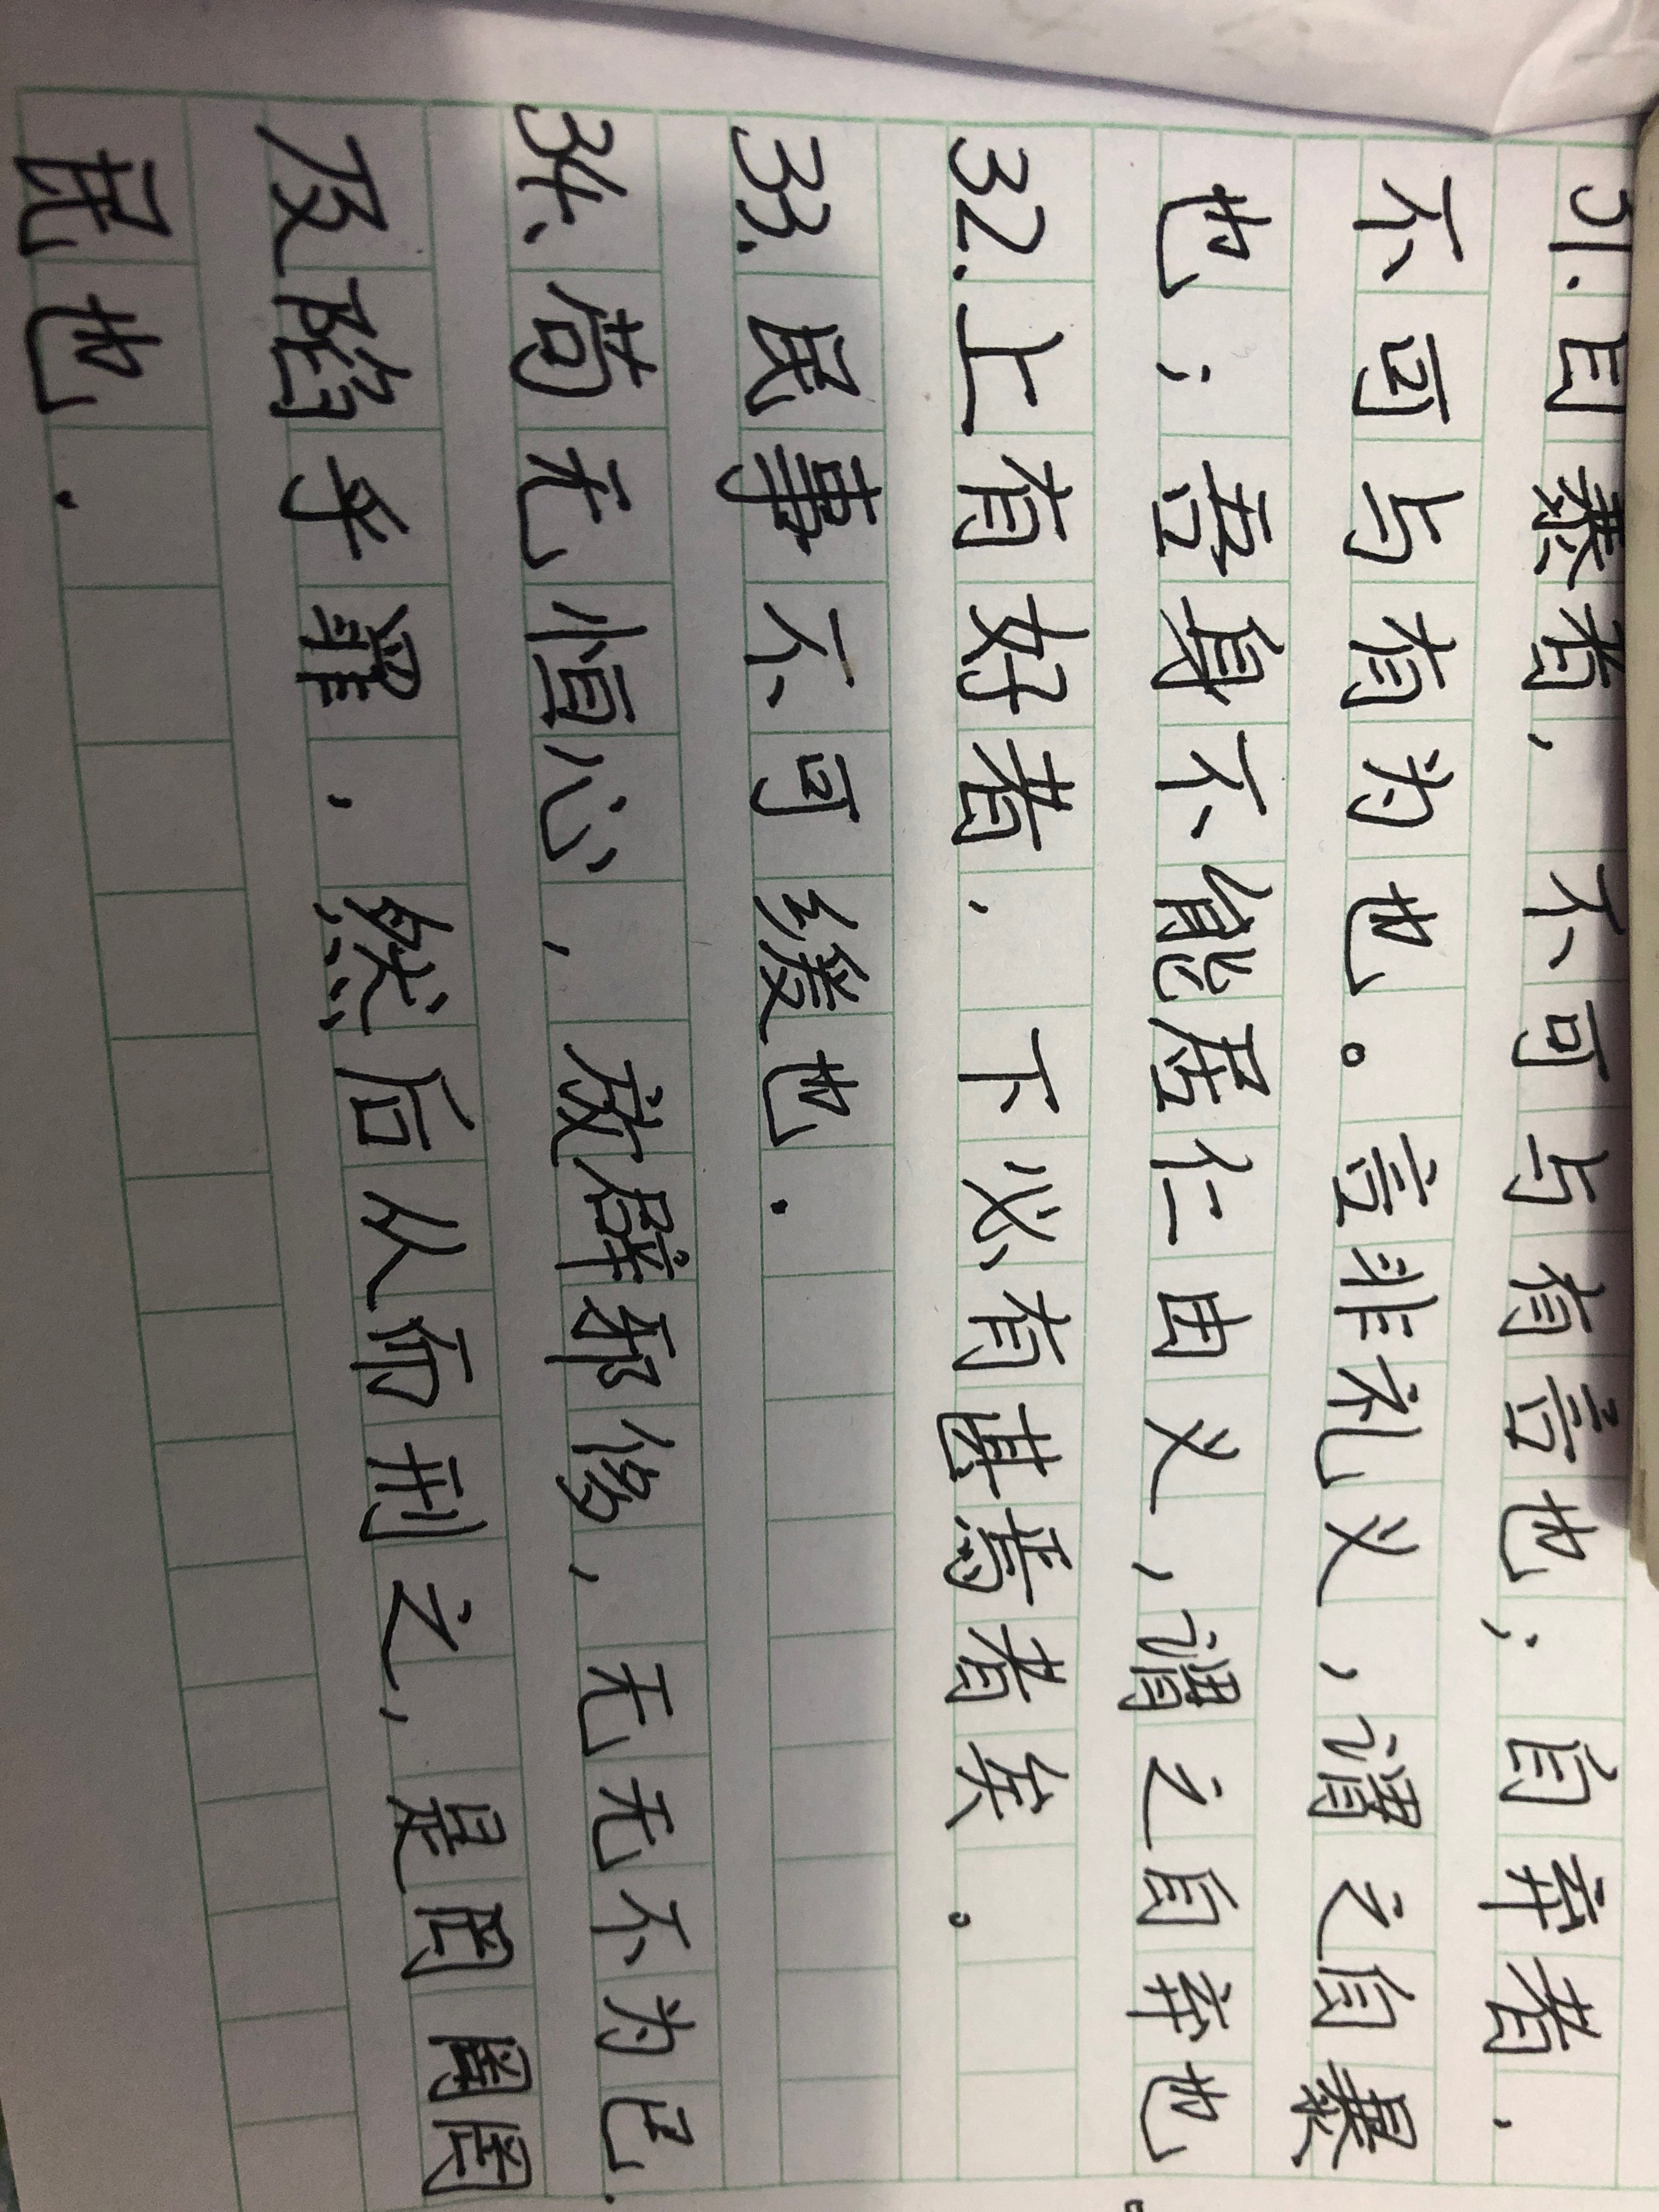 31.自暴者，不可与有言也；自弃者，
不可与有为也。言非礼义，谓之自暴
也；吾身不能居仁由义，谓之自弃也
32.上有好者，下必有甚焉者矣。
33.民事不可缓也.
34、苟无恒心，放辟邪侈，无无不为已.
及陷乎罪，然后从而刑之，是罔罔罔
民也.